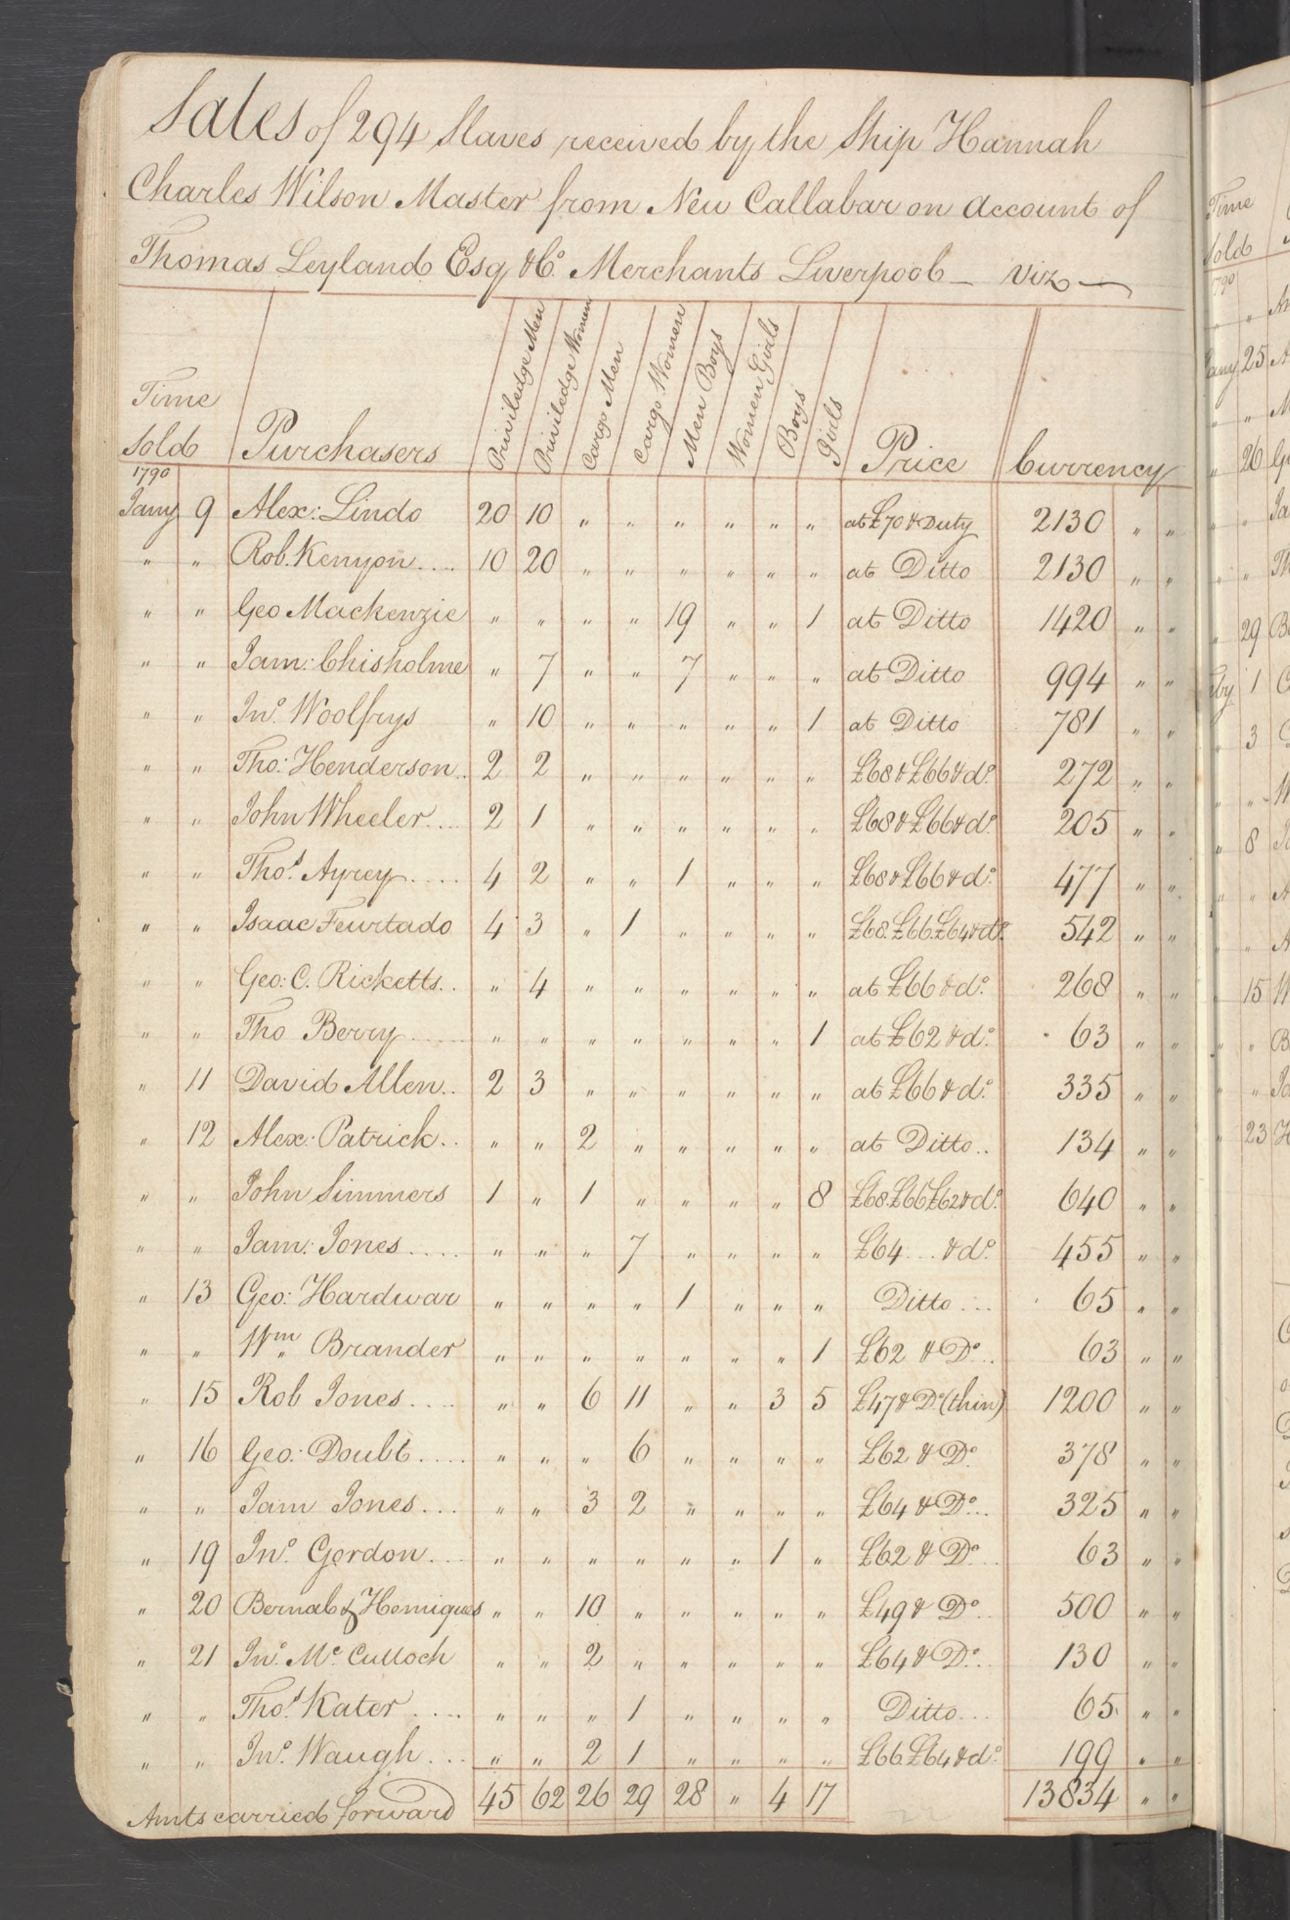 Sales of 294 Slaves received by the Ship Hannah
Charles Wilson Master from New Callabar on account of
Thomas Leyland Esq &Co. Merchants Liverpool — viz —
Time Sold | Purchasers | Priviledge Men | Priviledge Women | Cargo Men | Cargo Women | Men Boys | Women Girls | Boys | Girls | Price | Currency
1790
Jany 9 Alex: Lindo 20 10 " " " " " " at £70 & Duty 2130 " "
" " Rob. Kenyon.... 10 20 " " " " " " at Ditto 2130 " "
" " Geo Mackenzie " " " " 19 " " 1 at Ditto 1420 " "
" " Jam: Chisholme " 7 " " 7 " " " at Ditto 994 " "
" " Jno. Woolfrys " 10 " " " " " 1 at Ditto 781 " "
" " Tho: Henderson.. 2 2 " " " " " " £68 & £66 & do. 272 " "
" " John Wheeler.... 2 1 " " " " " " £68 & £66 & do. 205 " "
" " Thos. Ayrey..... 4 2 " " 1 " " " £68 & £66 & do. 477 " "
" " Isaac Feurtado 4 3 " 1 " " " " £68. £66. £64 & do. 542 " "
" " Geo: C. Ricketts.. " 4 " " " " " " at £66 & do. 268 " "
" " Tho Berry...... " " " " " " " 1 at £62 & do. 63 " "
" 11 David Allen.. 2 3 " " " " " " at £66 & do. 335 " "
" 12 Alex: Patrick.. " " 2 " " " " " at Ditto.. 134 " "
" " John Simmers 1 " 1 " " " " 8 £68. £66 £62 & do. 640 " "
" " Jam: Jones.... " " " 7 " " " " £64... & do. 455 " "
" 13 Geo: Hardwar " " " " 1 " " " Ditto... 65 " "
" " Wm Brander " " " " " " " 1 £62 & Do... 63 " "
" 15 Rob Jones.... " " 6 11 " " 3 5 £47 & Do. (thin) 1200 " "
" 16 Geo: Doubt.... " " " 6 " " " " £62 & Do. 378 " "
" " Jam Jones... " " 3 2 " " " " £64 & Do... 325 " "
" 19 Jno. Gordon.... " " " " " " 1 " £62 & Do... 63 " "
" 20 Bernal & Hemiques " " 10 " " " " " £49 & Do.. 500 " "
" 21 Jno. Mc. Culloch " " 2 " " " " " £64 & Do... 130 " "
" " Thos. Kater.... " " " 1 " " " " Ditto... 65 " "
" " Jno. Waugh... " " 2 1 " " " " £66. £64 & do. 199 " "
Amts carried forward 45 62 26 29 28 " 4 17 13834 " "
Time
Sold
1790
" "
Jany 25
" "
" 26
" "
" "
" 29
Feby 1
" 3
" "
" 8
" "
" "
" 15
" "
" "
" 23